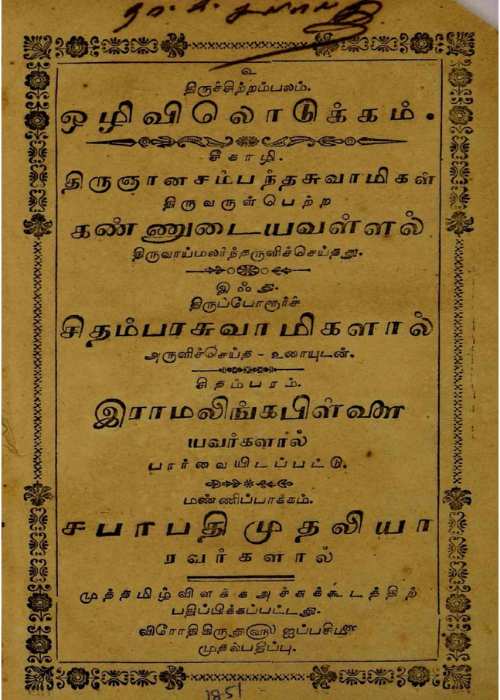 உ
திருச்சிற்றம்பலம்.
ஒழிவிலொடுக்கம்.
சீகாழி.
திருஞானசம்பந்தசுவாமிகள்
திருவருள்பெற்ற
கண்ணுடையவள்ளல்
திருவாய்மலர்ந்தருளிச்செய்தது.
இஃது.
திருப்போரூர்ச்
சிதம்பரசுவாமிகளால்
அருளிச்செய்த - உரையுடன்.
சிதம்பரம்.
இராமலிங்கபிள்ளை
யவர்களால்
பார்வையிடப்பட்டு.
மண்ணிப்பாக்கம்.
சபாபதி முதலியா
ரவர்களால்
முத்தமிழ்விளக்கஅச்சுக்கூடத்திற்
பதிப்பிக்கப்பட்டது.
விரோதிகிருது௵ ஐப்பசி௴
முதல்பதிப்பு.
1851